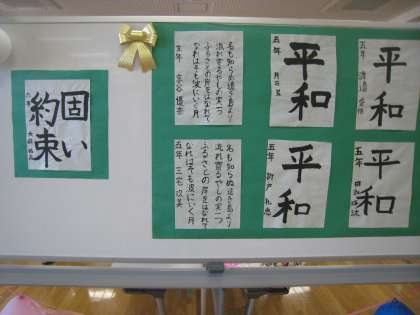 固い
約束
名も知らぬ遠き島より
流れ寄るやしの実一つ
ふるさとの岸をはなれて
なれはそも波にいく月
五年
平和
五年
平和
五年
名も知らぬ遠き島より
流れ寄るやしの実一つ
ふるさとの岸をはなれて
なれはそも波にいく月
五年 三宅
平和
五年
平和
五年